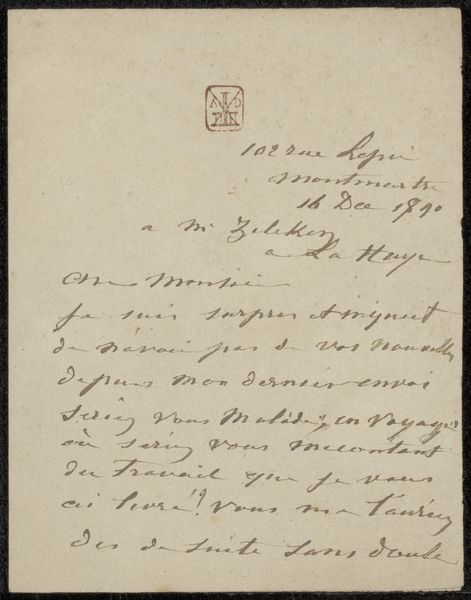 102 rue Lepic
Montmartre
16 Dec 1890
a Mr Zilcken
a La Haye
Cher Monsieur
Je suis surpris et inquiet
de n'avoir pas de vos nouvelles
depuis mon dernier envoi
seriez vous malade, en voyage
où seriez vous mecontent
du travail que je vous
ai livré!? vous me l'auriez
dis de suite sans doute